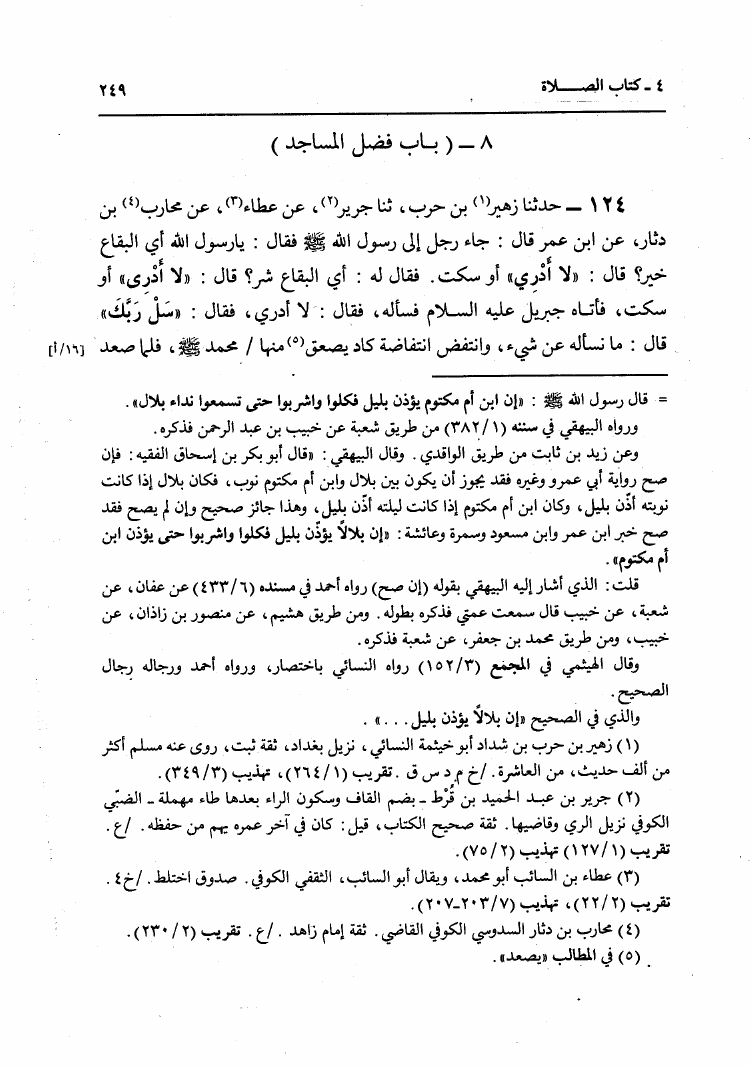 ٤ ـ كتاب الصـــــلاة ٢٤٩
٨ ــ ( بــاب فضل المساجد )
١٢٤ ــ حدثنا زهير(١) بن حرب، ثنا جرير(٢)، عن عطاء(٣)، عن محارب(٤) بن
دثار، عن ابن عمر قال : جاء رجل إلى رسول الله ﷺ فقال : يارسول الله أي البقاع
خير؟ قال : «لا أَدْرِي» أو سكت. فقال له : أي البقاع شر؟ قال : «لا أَدْرِى» أو
سكت، فأتـاه جبريل عليه الســلام فسأله، فقال : لا أدري، فقال : «سَلْ رَبَّكَ»
قال : ما نسأله عن شيء، وانتفض انتفاضة كاد يصعق(٥) منها / محمد ﷺ، فلما صعد [١٦/أ]
= قال رسول الله ﷺ : «إن ابن أم مكتوم يؤذن بليل فكلوا واشربوا حتى تسمعوا نداء بلال».
ورواه البيهقي في سننه (٣٨٢/١) من طريق شعبة عن خبيب بن عبد الرحمن فذكره.
وعن زيد بن ثابت من طريق الواقدي. وقال البيهقي : «قال أبو بكر بن إسحاق الفقيه: فإن
صح رواية أبي عمرو وغيره فقد يجوز أن يكون بين بلال وابن أم مكتوم نوب، فكان بلال إذا كانت
نوبته أذّن بليل، وكان ابن أم مكتوم إذا كانت ليلته أذّن بليل، وهذا جائز صحيح وإن لم يصح فقد
صح خبر ابن عمر وابن مسعود وسمرة وعائشة : «إن بلالاً يؤذّن بليل فكلوا واشربوا حتى يؤذن ابن
أم مكتوم».
قلت: الذي أشار إليه البيهقي بقوله (إن صح) رواه أحمد في مسنده (٤٣٣/٦) عن عفان، عن
شعبة، عن خبيب قال سمعت عمتي فذكره بطوله. ومن طريق هشيم، عن منصور بن زاذان، عن
خبيب، ومن طريق محمد بن جعفر، عن شعبة فذكره.
وقال الهيثمي في المجمع (١٥٢/٣) رواه النسائي باختصار، ورواه أحمد ورجاله رجال
الصحيح.
والذي في الصحيح «إن بلالاً يؤذن بليل...» .
(١) زهير بن حرب بن شداد أبو خيثمة النسائي، نزيل بغداد، ثقة ثبت، روى عنه مسلم أكثر
من ألف حديث، من العاشرة. /خ م د س ق .تقريب (٢٦٤/١)، تهذيب (٣٤٩/٣).
(٢) جرير بن عبـد الحميد بن قُرْط ـ بضم القاف وسكون الراء بعدها طاء مهملة ـ الضبّي
الكوفي نزيل الري وقاضيها. ثقة صحيح الكتاب، قيل: كان في آخر عمره يهم من حفظه. /ع.
تقريب (١٢٧/١) تهذيب (٧٥/٢).
(٣) عطاء بن السائب أبو محمد، ويقال أبو السائب، الثقفي الكوفي. صدوق اختلط. /خ٤.
تقريب (٢٢/٢)، تهذيب (٢٠٣/٧ـ٢٠٧).
(٤) محارب بن دثار السدوسي الكوفي القاضي. ثقة إمام زاهد ./ع. تقريب (٢٣٠/٢).
(٥) في المطالب «يصعد».